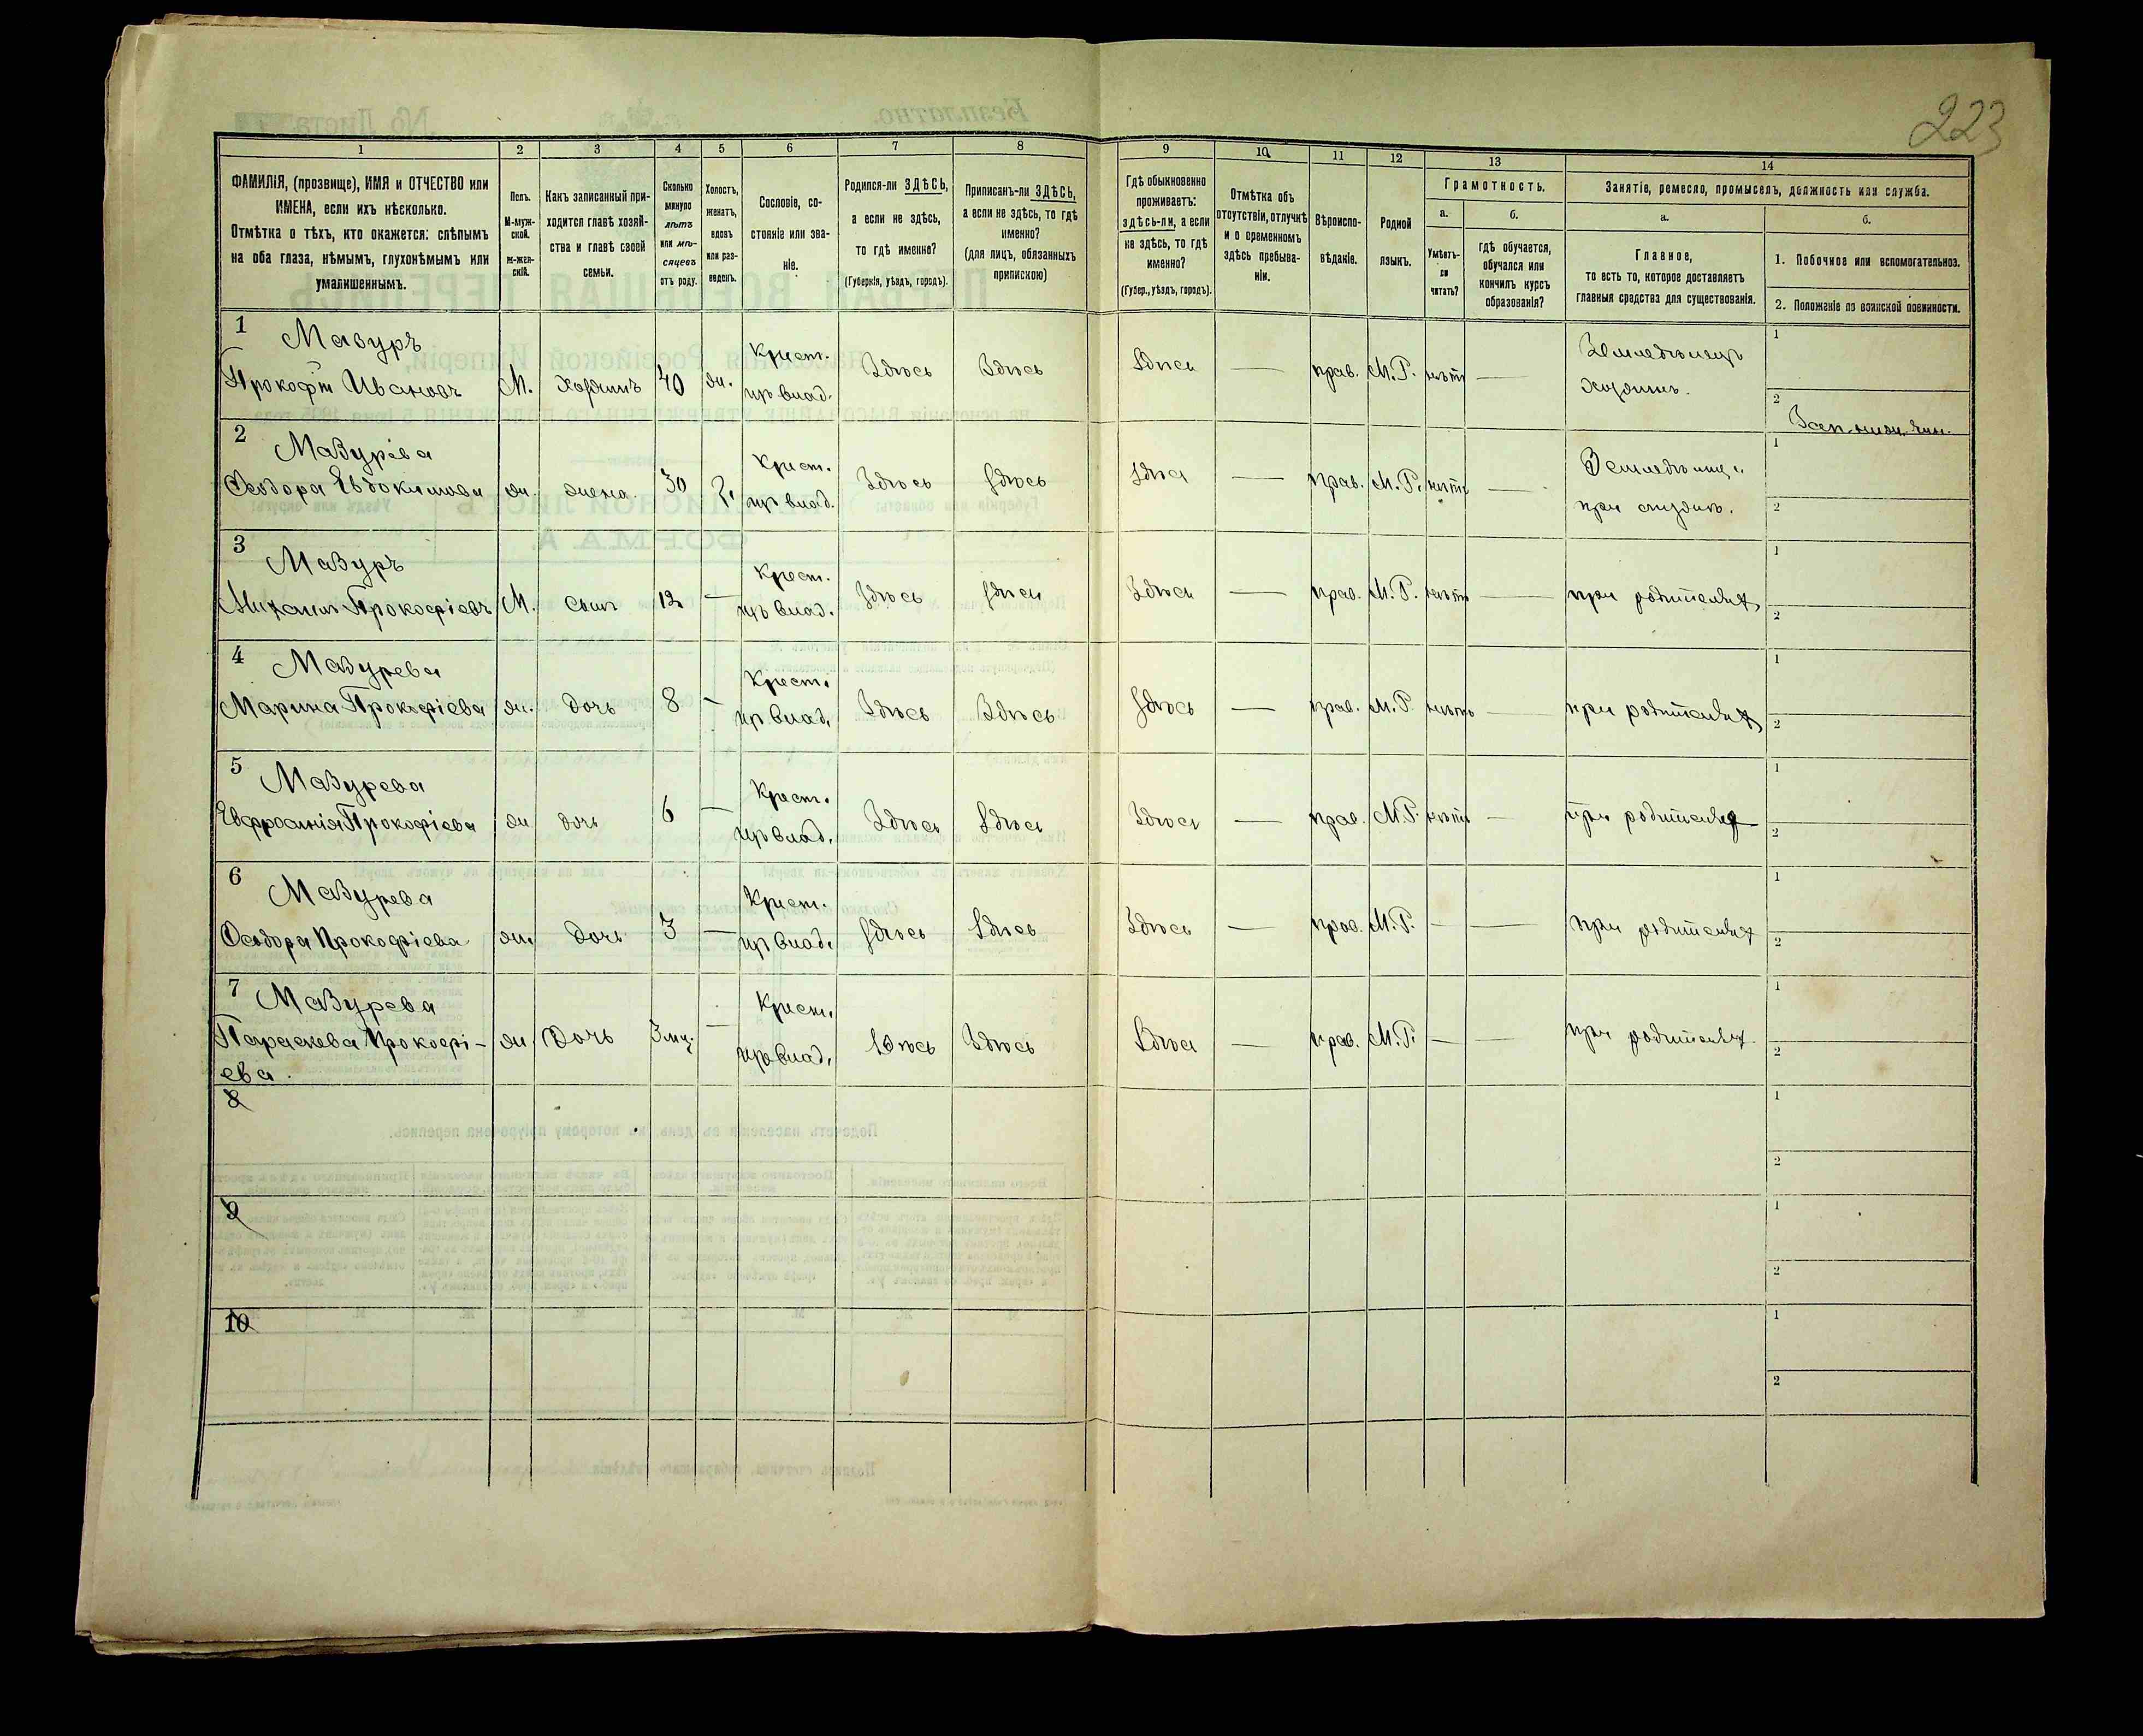 223
1 2 3 4 5 6 7 8 9 10 11 12 13 14
ФАМИЛІЯ, (прозвище), ИМЯ и ОТЧЕСТВО или
ИМЕНА, если ихъ нѣсколько.
Отмѣтка о тѣхъ, кто окажется: слѣпымъ
на оба глаза, нѣмымъ, глухонѣмымъ или
умалишеннымъ.
Полъ.
М-муж-
ской.
Ж-жен-
скій.
Какъ записанный при-
ходится главѣ хозяй-
ства и главѣ своей
семьи.
Сколько
минуло
лѣтъ
или мѣ-
сяцевъ
отъ роду.
Холостъ,
женатъ,
вдовъ
или раз-
веденъ.
Сословіе, со-
стояніе или зва-
ніе.
Родился-ли ЗДѢСЬ,
а если не здѣсь,
то гдѣ именно?
(Губернія, уѣздъ, городъ).
Приписанъ-ли ЗДѢСЬ,
а если не здѣсь, то гдѣ
именно?
(для лицъ, обязанныхъ
припискою)
Гдѣ обыкновенно
проживаетъ:
здѣсь-ли, а если
не здѣсь, то гдѣ
именно?
(Губер., уѣздъ, городъ).
Отмѣтка объ
отсутствіи, отлучкѣ
и о временномъ
здѣсь пребыва-
ніи.
Вѣроиспо-
вѣданіе.
Родной
языкъ.
Грамотность.
а.
Умѣетъ-
ли
читать?
б.
гдѣ обучается,
обучался или
кончилъ курсъ
образованія?
Занятіе, ремесло, промыселъ, должность или служба.
а.
Главное,
то есть то, которое доставляетъ
главныя средства для существованія.
б.
1. Побочное или вспомогательное.
2. Положеніе по воинской повинности.
1 Мазуръ Крест. Земледѣлецъ 1
Прокофій Ивановъ М. Хозяинъ 40 ж. кр влад. Здѣсь Здѣсь Здѣсь — прав. М.Р. нѣтъ — хозяинъ. 2
2 Мазурева Крест. 1
Ѳеодора Евдокимова ж. жена 30 З. кр влад. Здѣсь Здѣсь Здѣсь — прав. М.Р. нѣтъ — 2
3 Мазуръ Крест. 1
Михаилъ Прокофіевъ М. сынъ 12 — кр влад. Здѣсь Здѣсь Здѣсь — прав. М.Р. нѣтъ — при родителяхъ 2
4 Мазурева Крест. 1
Марина Прокофіева ж. дочь 8 — кр влад. Здѣсь Здѣсь Здѣсь — прав. М.Р. нѣтъ — при родителяхъ 2
5 Мазурева Крест. 1
Евфросинія Прокофіева ж дочь 6 — кр влад. Здѣсь Здѣсь Здѣсь — прав. М.Р. нѣтъ — при родителях 2
6 Мазурева Крест. 1
Ѳеодора Прокофіева ж. дочь 3 — кр влад. Здѣсь Здѣсь Здѣсь — прав. М.Р. — — при родителях 2
7 Мазурева Крест. 1
Параскева Прокофі- ж. Дочь 3 мц. — кр влад. Здѣсь Здѣсь Здѣсь — прав. М.Р. — — при родителях 2
ева.
8 1
2
9 1
2
10 1
2